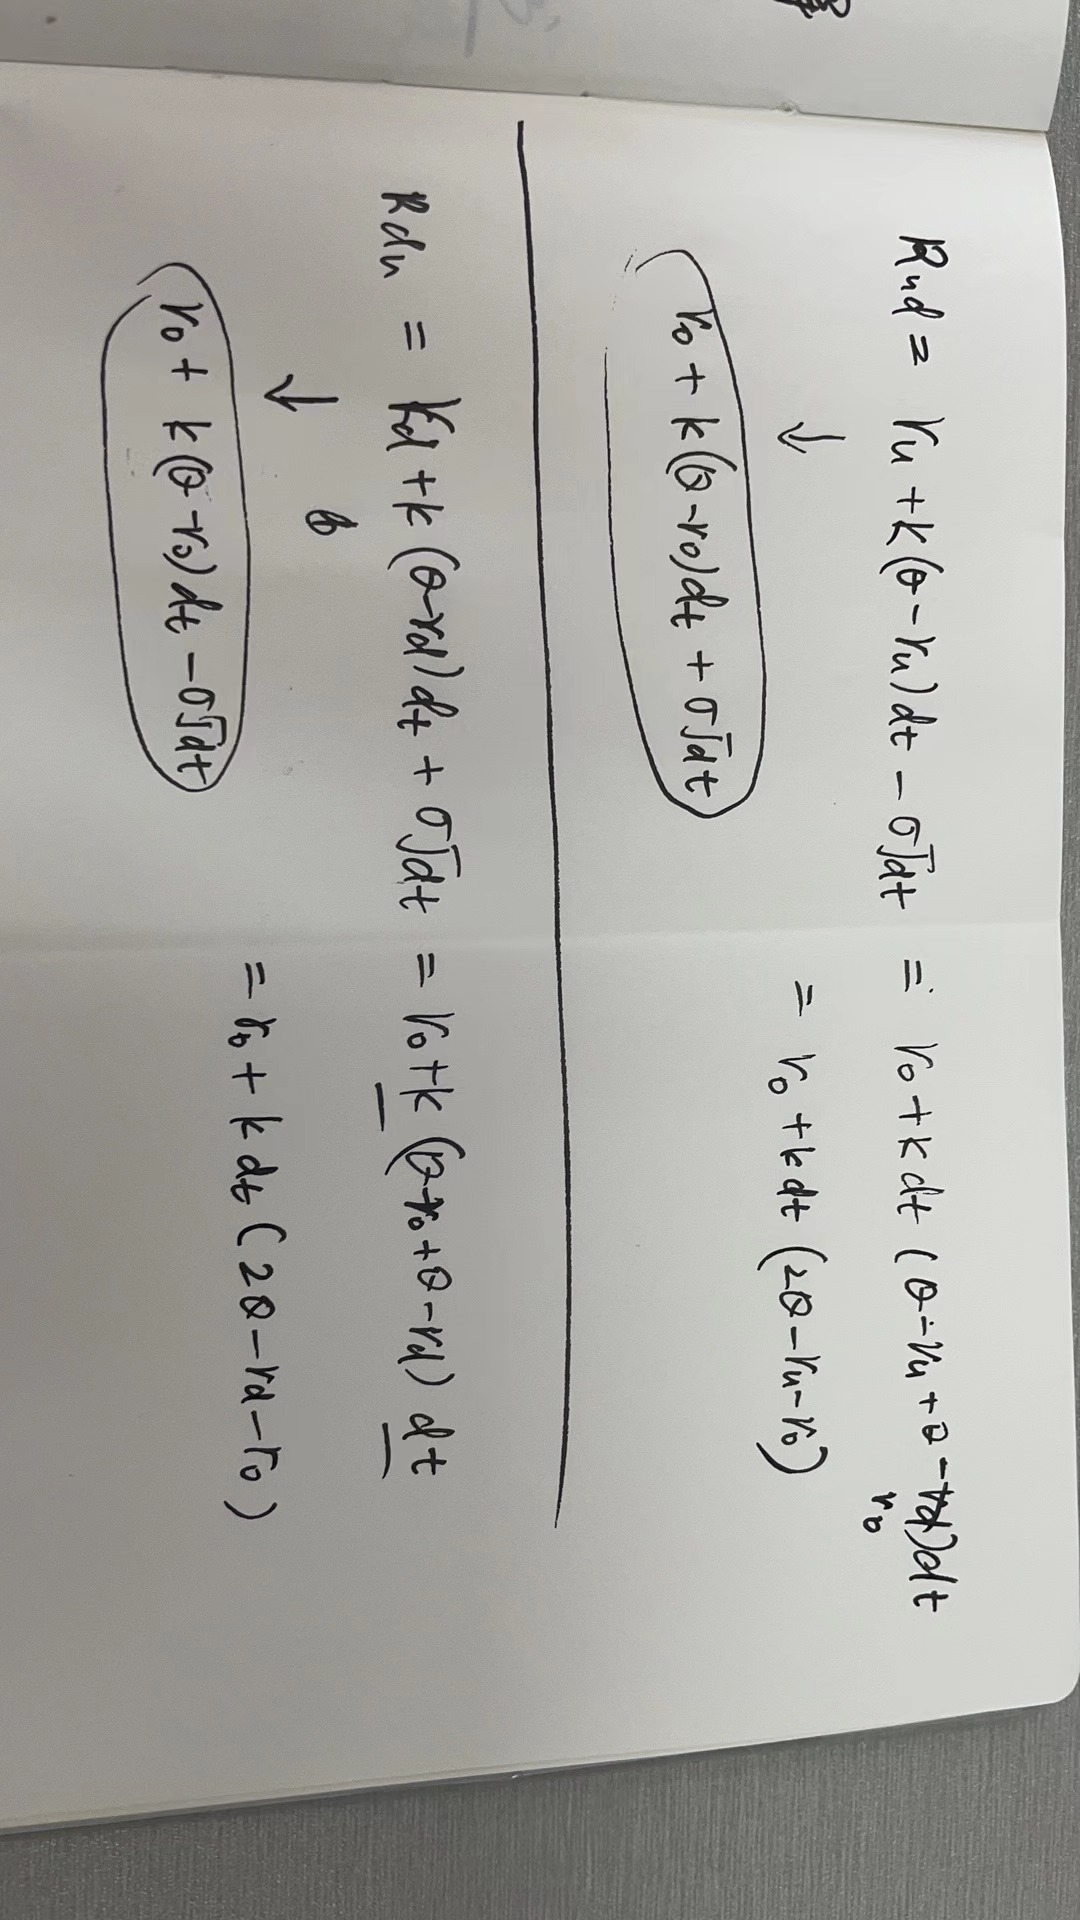 Rud = ru + k(θ - ru)dt - σ√dt = r0 + kdt (θ - ru + θ - rd)dt
r0
↓
r0 + k(θ - r0)dt + σ√dt
= r0 + kdt (2θ - ru - r0)
Rdu = rd + k(θ - rd)dt + σ√dt = r0 + k(θ - r0 + θ - rd) dt
↓
r0 + k(θ - r0)dt - σ√dt
= r0 + kdt (2θ - rd - r0)